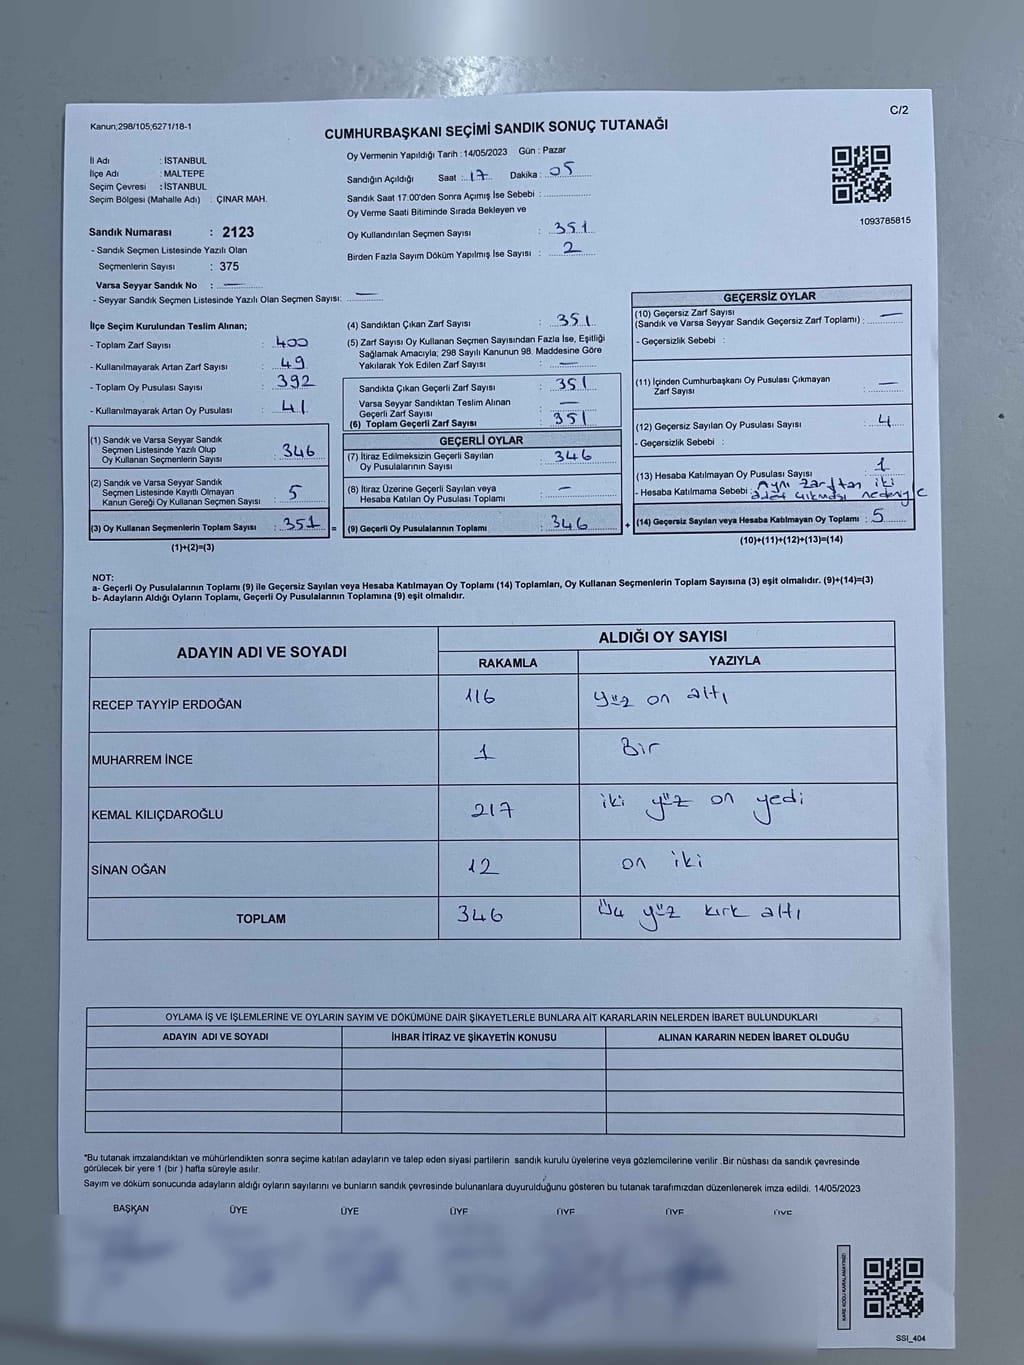 C/2
Kanun;298/105;6271/18-1
CUMHURBAŞKANI SEÇİMİ SANDIK SONUÇ TUTANAĞI
İl Adı : İSTANBUL
İlçe Adı : MALTEPE
Seçim Çevresi : İSTANBUL
Seçim Bölgesi (Mahalle Adı) : ÇINAR MAH.
Sandık Numarası : 2123
- Sandık Seçmen Listesinde Yazılı Olan
Seçmenlerin Sayısı : 375
Varsa Seyyar Sandık No : —
- Seyyar Sandık Seçmen Listesinde Yazılı Olan Seçmen Sayısı: —
Oy Vermenin Yapıldığı Tarih : 14/05/2023 Gün : Pazar
Sandığın Açıldığı Saat : 17 Dakika : 05
Sandık Saat 17:00'den Sonra Açımış İse Sebebi :
Oy Verme Saati Bitiminde Sırada Bekleyen ve
Oy Kullandırılan Seçmen Sayısı : 351
Birden Fazla Sayım Döküm Yapılmış İse Sayısı : 2
1093785815
İlçe Seçim Kurulundan Teslim Alınan;
- Toplam Zarf Sayısı : 400
- Kullanılmayarak Artan Zarf Sayısı : 49
- Toplam Oy Pusulası Sayısı : 392
- Kullanılmayarak Artan Oy Pusulası : 41
(1) Sandık ve Varsa Seyyar Sandık
Seçmen Listesinde Yazılı Olup
Oy Kullanan Seçmenlerin Sayısı : 346
(2) Sandık ve Varsa Seyyar Sandık
Seçmen Listesinde Kayıtlı Olmayan
Kanun Gereği Oy Kullanan Seçmen Sayısı : 5
(3) Oy Kullanan Seçmenlerin Toplam Sayısı : 351 =
(1)+(2)=(3)
(4) Sandıktan Çıkan Zarf Sayısı : 351
(5) Zarf Sayısı Oy Kullanan Seçmen Sayısından Fazla İse, Eşitliği
Sağlamak Amacıyla; 298 Sayılı Kanunun 98. Maddesine Göre
Yakılarak Yok Edilen Zarf Sayısı : —
Sandıkta Çıkan Geçerli Zarf Sayısı : 351
Varsa Seyyar Sandıktan Teslim Alınan
Geçerli Zarf Sayısı : —
(6) Toplam Geçerli Zarf Sayısı : 351
GEÇERLİ OYLAR
(7) İtiraz Edilmeksizin Geçerli Sayılan
Oy Pusulalarının Sayısı : 346
(8) İtiraz Üzerine Geçerli Sayılan veya
Hesaba Katılan Oy Pusulası Toplamı : —
(9) Geçerli Oy Pusulalarının Toplamı : 346 +
GEÇERSİZ OYLAR
(10) Geçersiz Zarf Sayısı
(Sandık ve Varsa Seyyar Sandık Geçersiz Zarf Toplamı) : —
- Geçersizlik Sebebi :
(11) İçinden Cumhurbaşkanı Oy Pusulası Çıkmayan
Zarf Sayısı : —
(12) Geçersiz Sayılan Oy Pusulası Sayısı : 4
- Geçersizlik Sebebi :
(13) Hesaba Katılmayan Oy Pusulası Sayısı : 1
- Hesaba Katılmama Sebebi : Aynı zarftan iki
adet çıkması nedeniyle
(14) Geçersiz Sayılan veya Hesaba Katılmayan Oy Toplamı : 5
(10)+(11)+(12)+(13)=(14)
NOT:
a- Geçerli Oy Pusulalarının Toplamı (9) ile Geçersiz Sayılan veya Hesaba Katılmayan Oy Toplamı (14) Toplamları, Oy Kullanan Seçmenlerin Toplam Sayısına (3) eşit olmalıdır. (9)+(14)=(3)
b- Adayların Aldığı Oyların Toplamı, Geçerli Oy Pusulalarının Toplamına (9) eşit olmalıdır.
ADAYIN ADI VE SOYADI
ALDIĞI OY SAYISI
RAKAMLA YAZIYLA
RECEP TAYYİP ERDOĞAN 116 yüz on altı
MUHARREM İNCE 1 Bir
KEMAL KILIÇDAROĞLU 217 iki yüz on yedi
SİNAN OĞAN 12 on iki
TOPLAM 346 Üç yüz kırk altı
OYLAMA İŞ VE İŞLEMLERİNE VE OYLARIN SAYIM VE DÖKÜMÜNE DAİR ŞİKAYETLERLE BUNLARA AİT KARARLARIN NELERDEN İBARET BULUNDUKLARI
ADAYIN ADI VE SOYADI İHBAR İTİRAZ VE ŞİKAYETİN KONUSU ALINAN KARARIN NEDEN İBARET OLDUĞU
*Bu tutanak imzalandıktan ve mühürlendikten sonra seçime katılan adayların ve talep eden siyasi partilerin sandık kurulu üyelerine veya gözlemcilerine verilir .Bir nüshası da sandık çevresinde
görülecek bir yere 1 (bir ) hafta süreyle asılır.
Sayım ve döküm sonucunda adayların aldığı oyların sayılarını ve bunların sandık çevresinde bulunanlara duyurulduğunu gösteren bu tutanak tarafımızdan düzenlenerek imza edildi. 14/05/2023
BAŞKAN ÜYE ÜYE ÜYE ÜYE ÜYE ÜYE
KARE KODU KARALAMAYINIZ!
SSI_404